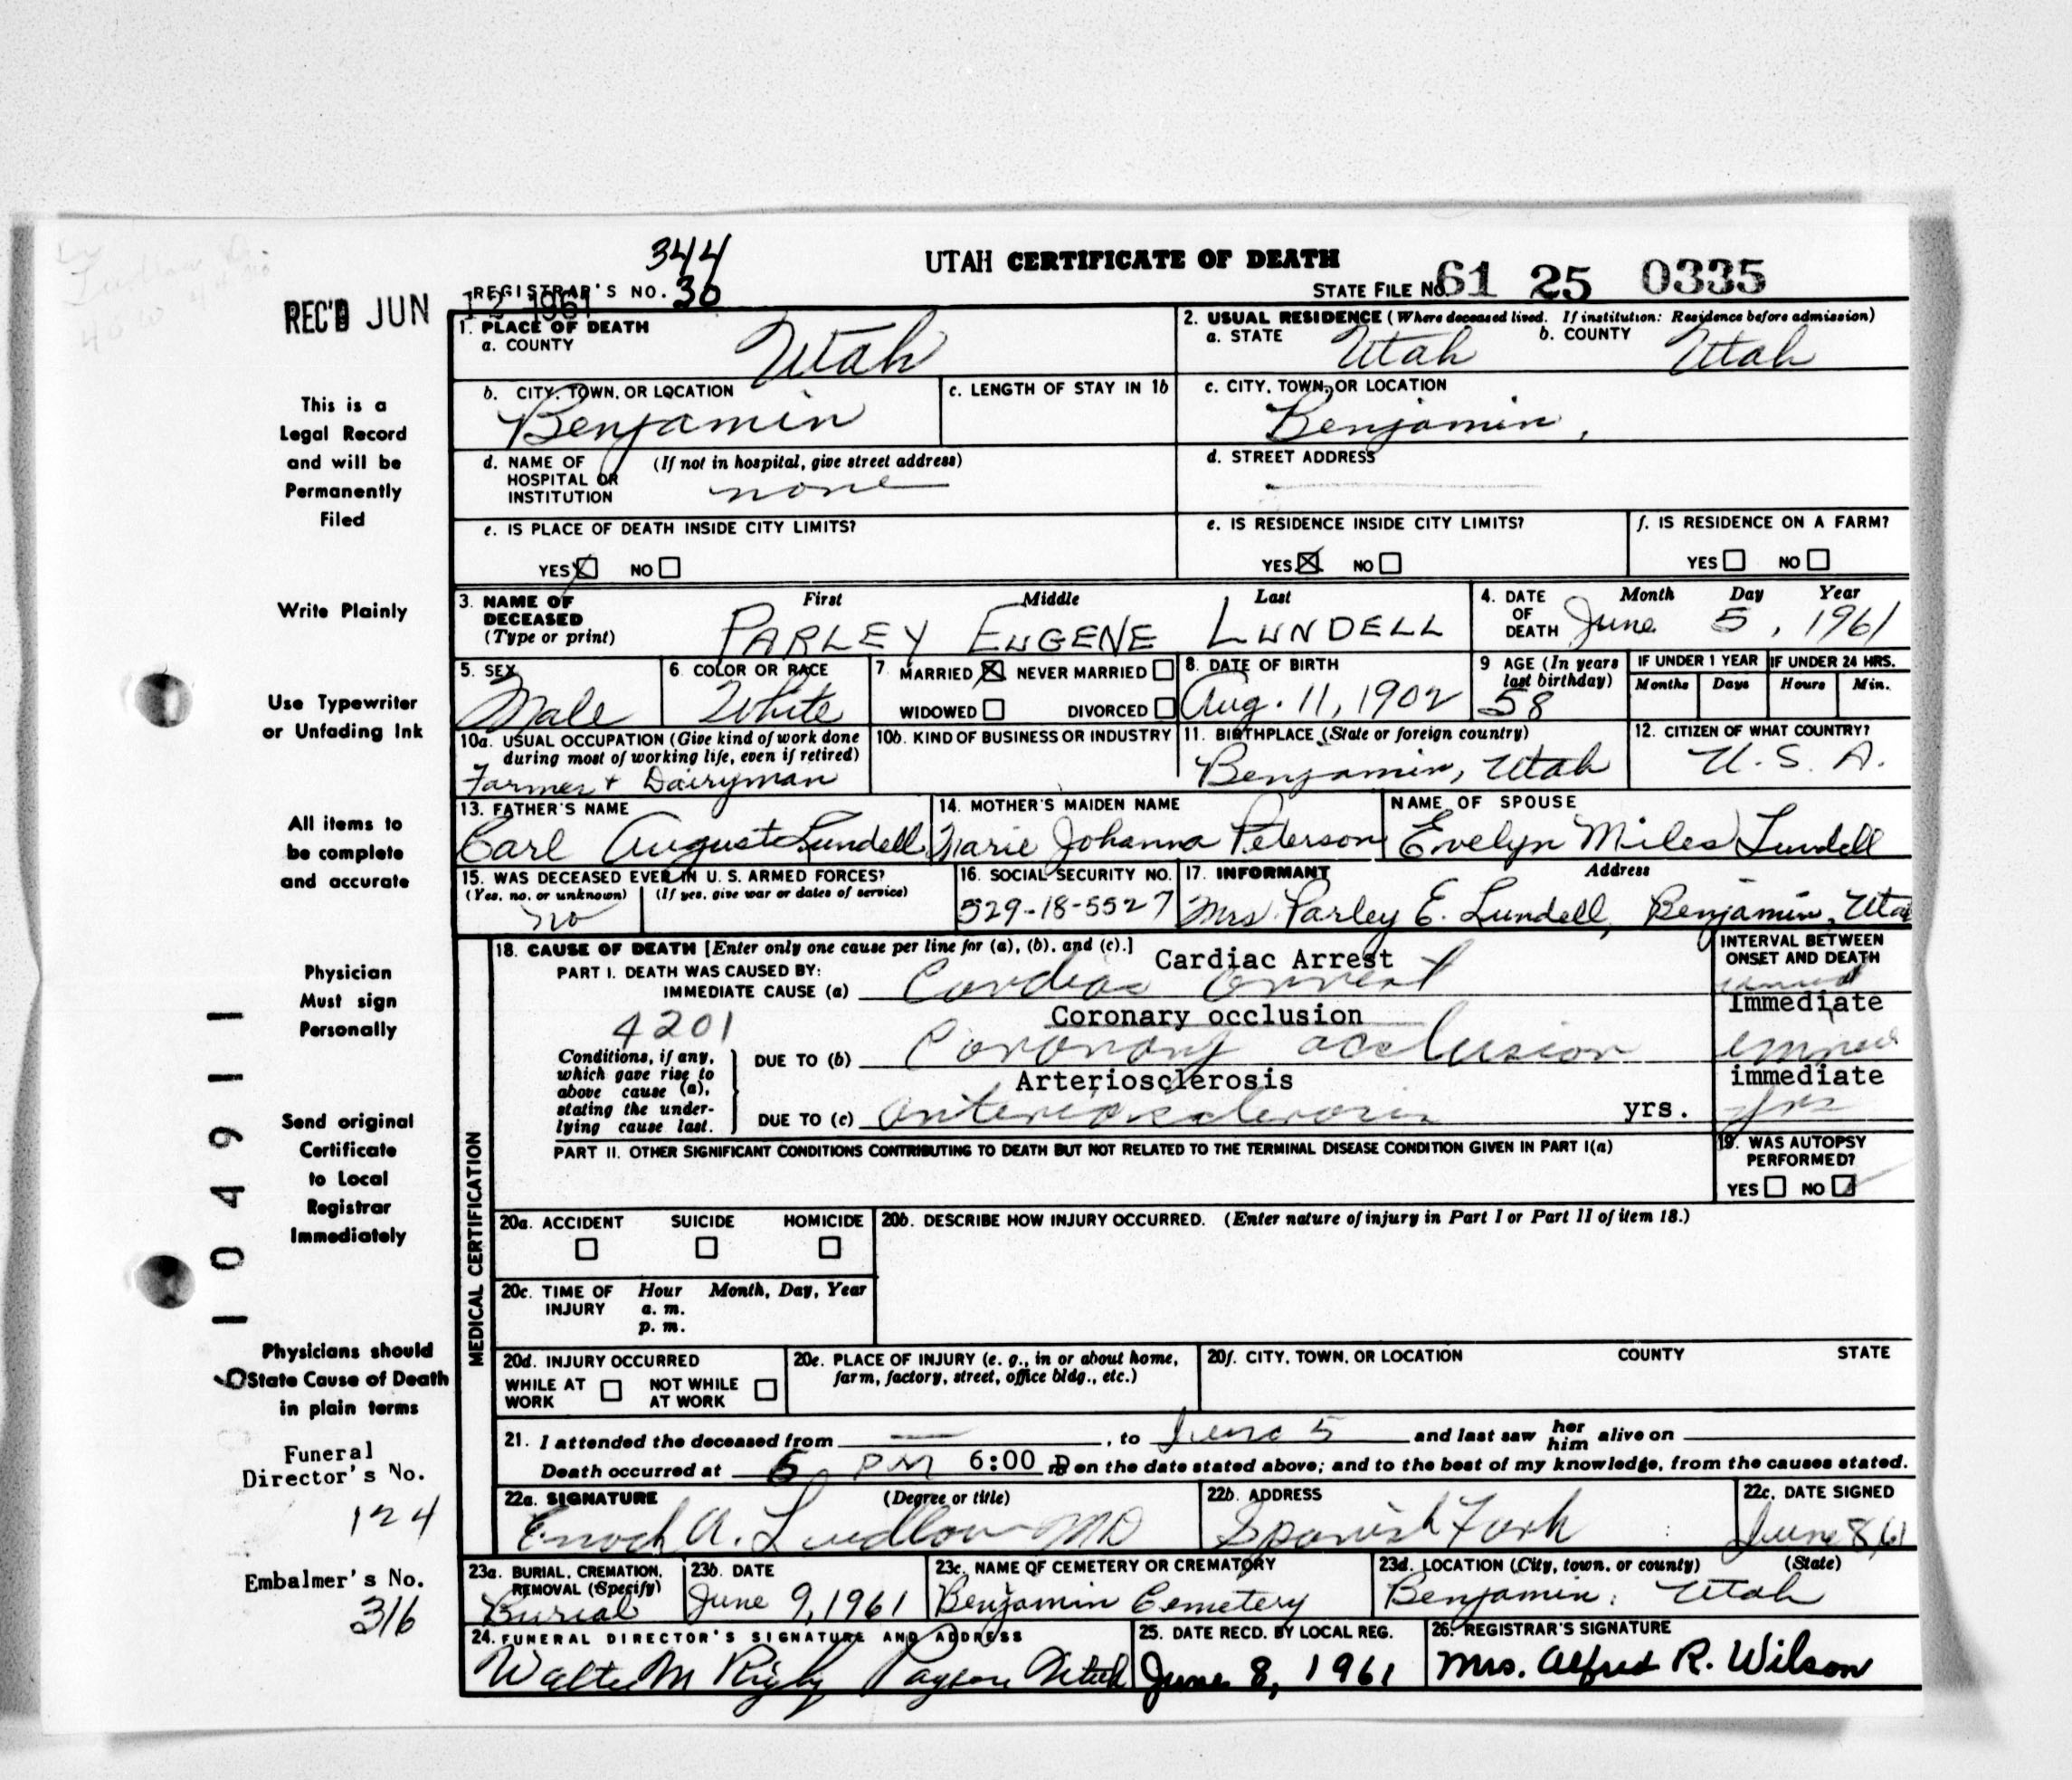 344
UTAH CERTIFICATE OF DEATH
REC'D JUN 12 1961
REGISTRAR'S NO. 30
STATE FILE NO. 61 25 0335
1. PLACE OF DEATH
a. COUNTY Utah
2. USUAL RESIDENCE (Where deceased lived. If institution: Residence before admission)
a. STATE Utah b. COUNTY Utah
b. CITY, TOWN, OR LOCATION Benjamin
c. LENGTH OF STAY IN 1b
c. CITY, TOWN, OR LOCATION Benjamin,
d. NAME OF HOSPITAL OR INSTITUTION (If not in hospital, give street address) none
d. STREET ADDRESS
e. IS PLACE OF DEATH INSIDE CITY LIMITS?
YES X NO
e. IS RESIDENCE INSIDE CITY LIMITS?
YES X NO
f. IS RESIDENCE ON A FARM?
YES NO
This is a
Legal Record
and will be
Permanently
Filed
Write Plainly
Use Typewriter
or Unfading Ink
All items to
be complete
and accurate
Physician
Must sign
Personally
Send original
Certificate
to Local
Registrar
Immediately
Physicians should
State Cause of Death
in plain terms
Funeral
Director's No.
124
Embalmer's No.
316
3. NAME OF DECEASED (Type or print) First Middle Last
PARLEY EUGENE LUNDELL
4. DATE OF DEATH Month Day Year
June 5, 1961
5. SEX Male
6. COLOR OR RACE White
7. MARRIED X NEVER MARRIED
WIDOWED DIVORCED
8. DATE OF BIRTH Aug. 11, 1902
9 AGE (In years last birthday) 58
IF UNDER 1 YEAR Months Days
IF UNDER 24 HRS. Hours Min.
10a. USUAL OCCUPATION (Give kind of work done during most of working life, even if retired)
Farmer + Dairyman
10b. KIND OF BUSINESS OR INDUSTRY
11. BIRTHPLACE (State or foreign country)
Benjamin, Utah
12. CITIZEN OF WHAT COUNTRY?
U.S.A.
13. FATHER'S NAME
Carl August Lundell
14. MOTHER'S MAIDEN NAME
Marie Johanna Peterson
NAME OF SPOUSE
Evelyn Miles Lundell
15. WAS DECEASED EVER IN U. S. ARMED FORCES?
(Yes, no, or unknown) (If yes, give war or dates of service)
no
16. SOCIAL SECURITY NO.
529-18-5527
17. INFORMANT Address
Mrs. Parley E. Lundell, Benjamin, Utah
MEDICAL CERTIFICATION
18. CAUSE OF DEATH [Enter only one cause per line for (a), (b), and (c).]
PART I. DEATH WAS CAUSED BY:
IMMEDIATE CAUSE (a) Cardiac Arrest
Cardiac arrest
INTERVAL BETWEEN ONSET AND DEATH
Immediate
4201
Coronary occlusion
DUE TO (b) Coronary occlusion
immediate
Conditions, if any, which gave rise to above cause (a), stating the underlying cause last.
Arteriosclerosis
DUE TO (c) arteriosclerosis yrs. yrs
PART II. OTHER SIGNIFICANT CONDITIONS CONTRIBUTING TO DEATH BUT NOT RELATED TO THE TERMINAL DISEASE CONDITION GIVEN IN PART I(a)
19. WAS AUTOPSY PERFORMED?
YES NO ✓
20a. ACCIDENT SUICIDE HOMICIDE
20b. DESCRIBE HOW INJURY OCCURRED. (Enter nature of injury in Part I or Part II of item 18.)
20c. TIME OF INJURY Hour a. m. p. m. Month, Day, Year
20d. INJURY OCCURRED
WHILE AT WORK NOT WHILE AT WORK
20e. PLACE OF INJURY (e. g., in or about home, farm, factory, street, office bldg., etc.)
20f. CITY, TOWN, OR LOCATION COUNTY STATE
21. I attended the deceased from — , to June 5 and last saw her him alive on
Death occurred at 6 PM 6:00 P on the date stated above; and to the best of my knowledge, from the causes stated.
22a. SIGNATURE (Degree or title)
Enoch A. Ludlow MD
22b. ADDRESS
Spanish Fork
22c. DATE SIGNED
June 8, 61
23a. BURIAL, CREMATION, REMOVAL (Specify)
Burial
23b. DATE
June 9, 1961
23c. NAME OF CEMETERY OR CREMATORY
Benjamin Cemetery
23d. LOCATION (City, town, or county) (State)
Benjamin, Utah
24. FUNERAL DIRECTOR'S SIGNATURE AND ADDRESS
Walter M Rigby Payson Utah
25. DATE RECD. BY LOCAL REG.
June 8, 1961
26. REGISTRAR'S SIGNATURE
Mrs. Alfred R. Wilson